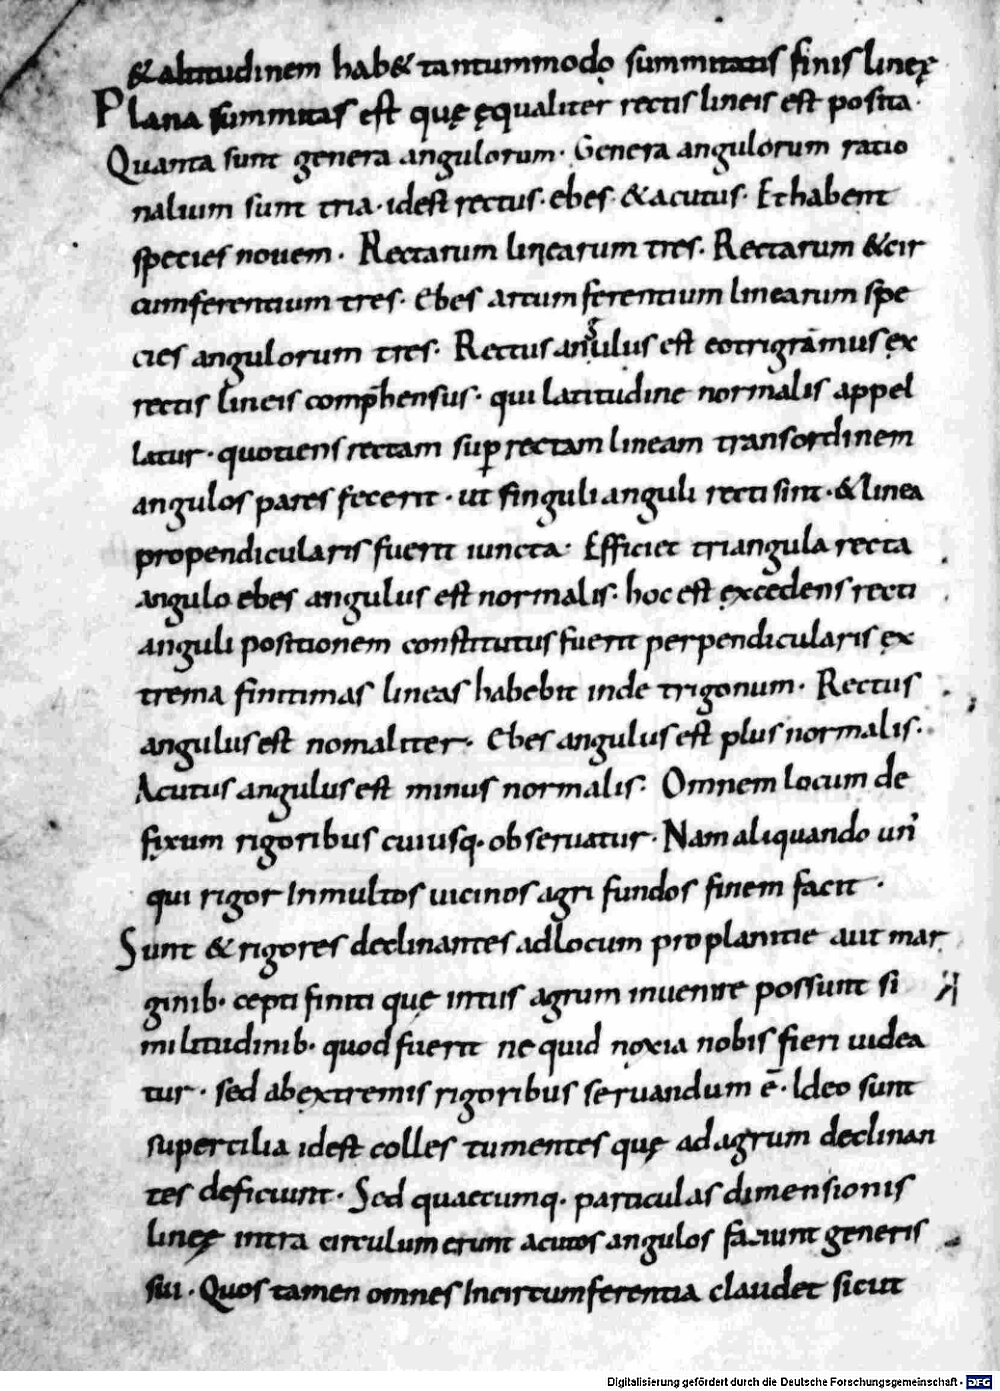 & altitudinem hab& tantummodo summitatis finis lineę
Plana summitas est quę ęqualiter rectis lineis est posita·
Quanta sunt genera angulorum· Genera angulorum ratio
nalium sunt tria· idest rectus· ebes· & acutus· Et habent
species nouem· Rectarum linearum tres· Rectarum & cir
cumferentium tres· Ebes artumferentium linearum spe
cies angulorum tres· Rectus angulus est eotrigrāmus ex
rectis lineis comp̄hensus· qui latitudine normalis appel
latur· quotiens rectam sup̱ rectam lineam transordinem
angulos pares fecerit· ut singuli anguli recti sint· & linea
propendicularis fuerit iuncta· Efficiet triangula recta
angulo ebes angulus est normalis· hoc est excedens recti
anguli positionem constitutus fuerit perpendicularis ex
trema finitimas lineas habebit inde trigonum· Rectus
angulus est nomaliter· Ebes angulus est plus normalis·
Acutus angulus est minus normalis· Omnem locum de
fixum rigoribus cuiusq· obseruatur· Nam aliquando un'
qui rigor In multos uicinos agri fundos finem facit·
Sunt & rigores declinantes ad locum pro planitie aut mar
ginib· cepti finiti quę intus agrum inuenire possunt si
militudinib· quod fuerit ne quid noxia nobis fieri uidea
tur· sed ab extremis rigoribus seruandum ē· Ideo sunt
supercilia idest colles tumentes quę ad agrum declinan
tes deficiunt· Sed quaecumq· particulas dimensionis
linęę intra circulum erunt acutos angulos faciunt generis
sui· Quos tamen omnes In circumferentia claudet sicut
Digitalisierung gefördert durch die Deutsche Forschungsgemeinschaft - DFG